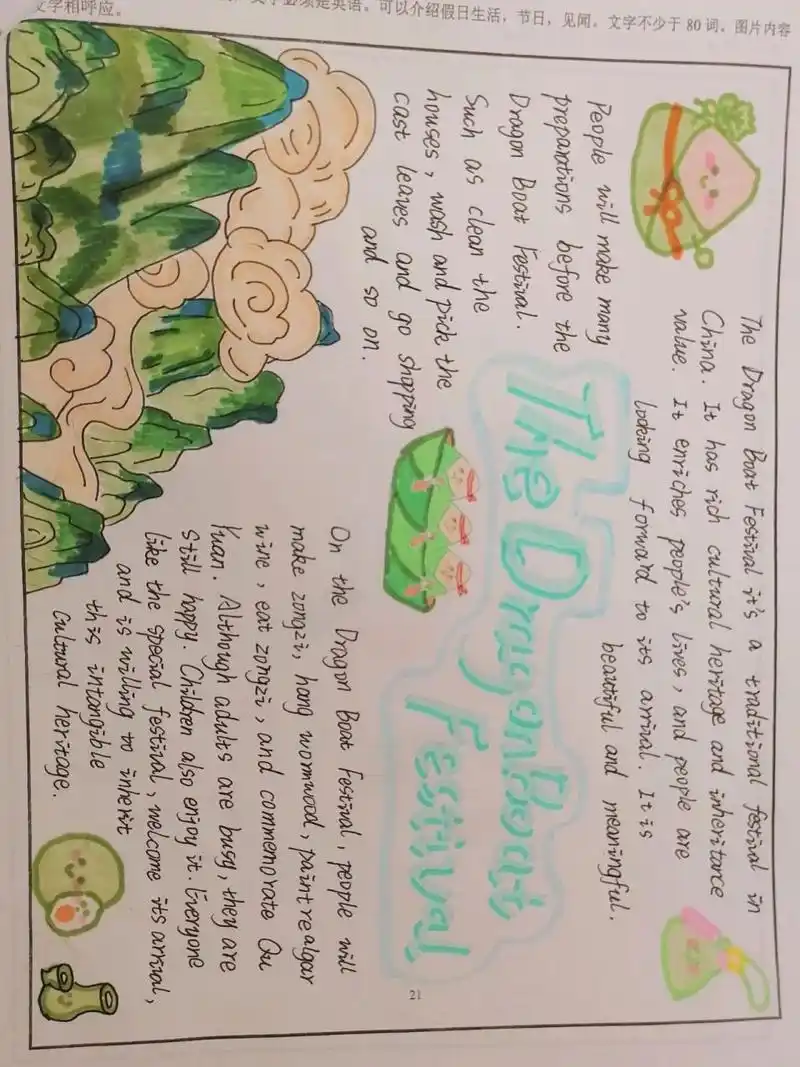 文字相呼应。
必须是英语。可以介绍假日生活，节日，见闻。文字不少于 80 词。图片内容
The Dragon Boat Festival it's a traditional festival in
China. It has rich cultural heritage and inheritance
value. It enriches people's lives, and people are
looking forward to its arrival. It is
beautiful and meaningful.
People will make many
preparations before the
Dragon Boat Festival.
Such as clean the
houses, wash and pick the
cast leaves and go shipping
and so on.
The Dragon Boat
Festival
On the Dragon Boat Festival, people will
make zongzi, hang wormwood, paint realgar
wine, eat zongzi, and commemorate Qu
Yuan. Although adults are busy, they are
still happy. Children also enjoy it. Everyone
like the special festival, welcome its arrival,
and is willing to inherit
this intangible
cultural heritage.
21